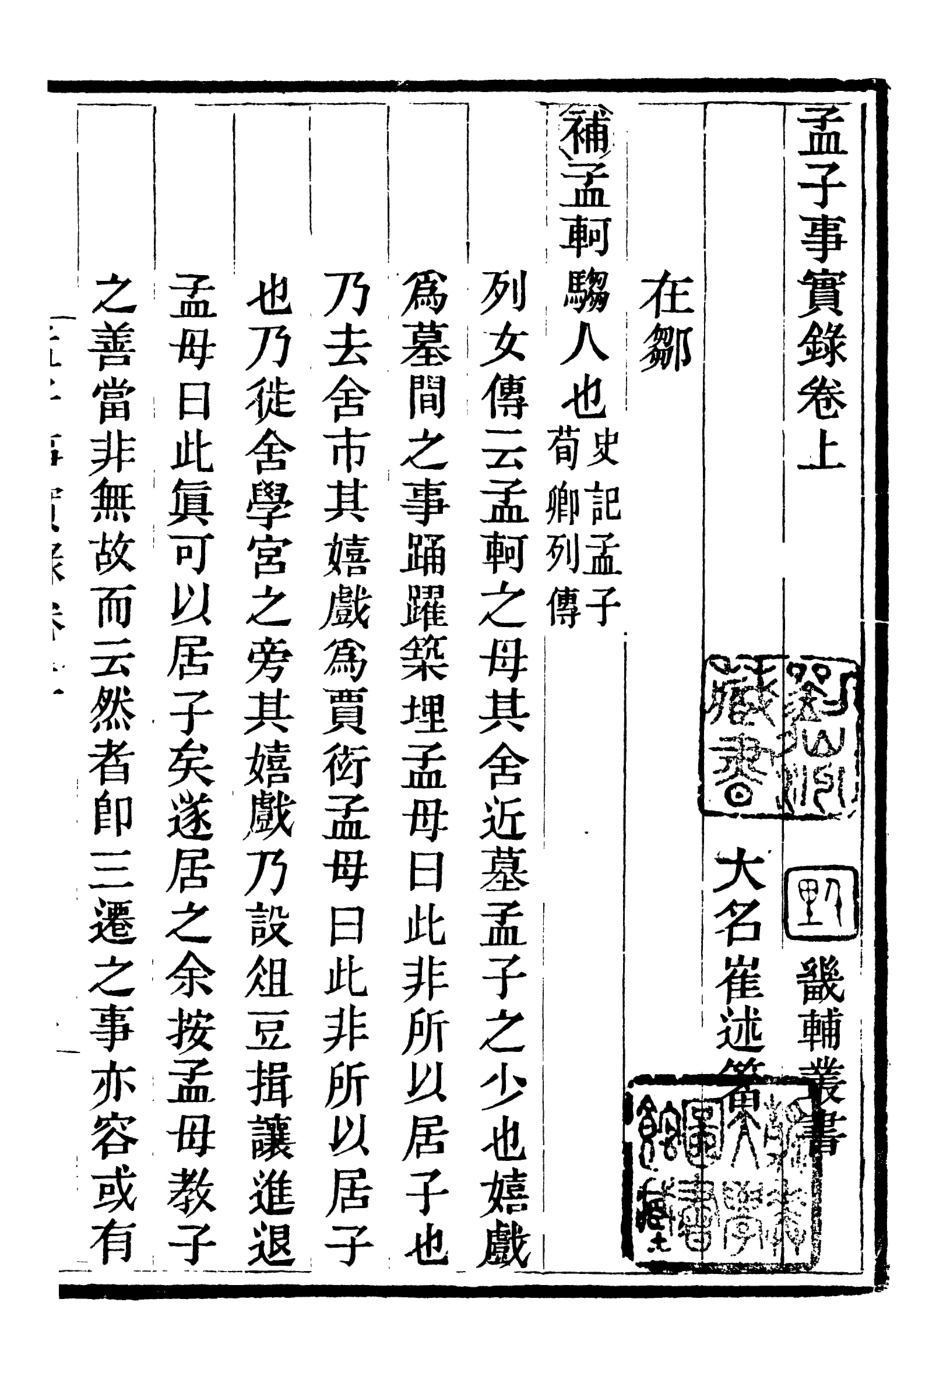 孟子事實錄卷上
畿輔叢書
大名崔述
在鄒
補孟軻騶人也史記孟子荀卿列傳
列女傳云孟軻之母其舍近墓孟子之少也嬉戲
爲墓間之事踊躍築埋孟母曰此非所以居子也
乃去舍市其嬉戲爲賈衒孟母曰此非所以居子
也乃徙舍學宮之旁其嬉戲乃設俎豆揖讓進退
孟母曰此眞可以居子矣遂居之余按孟母教子
之善當非無故而云然者卽三遷之事亦容或有